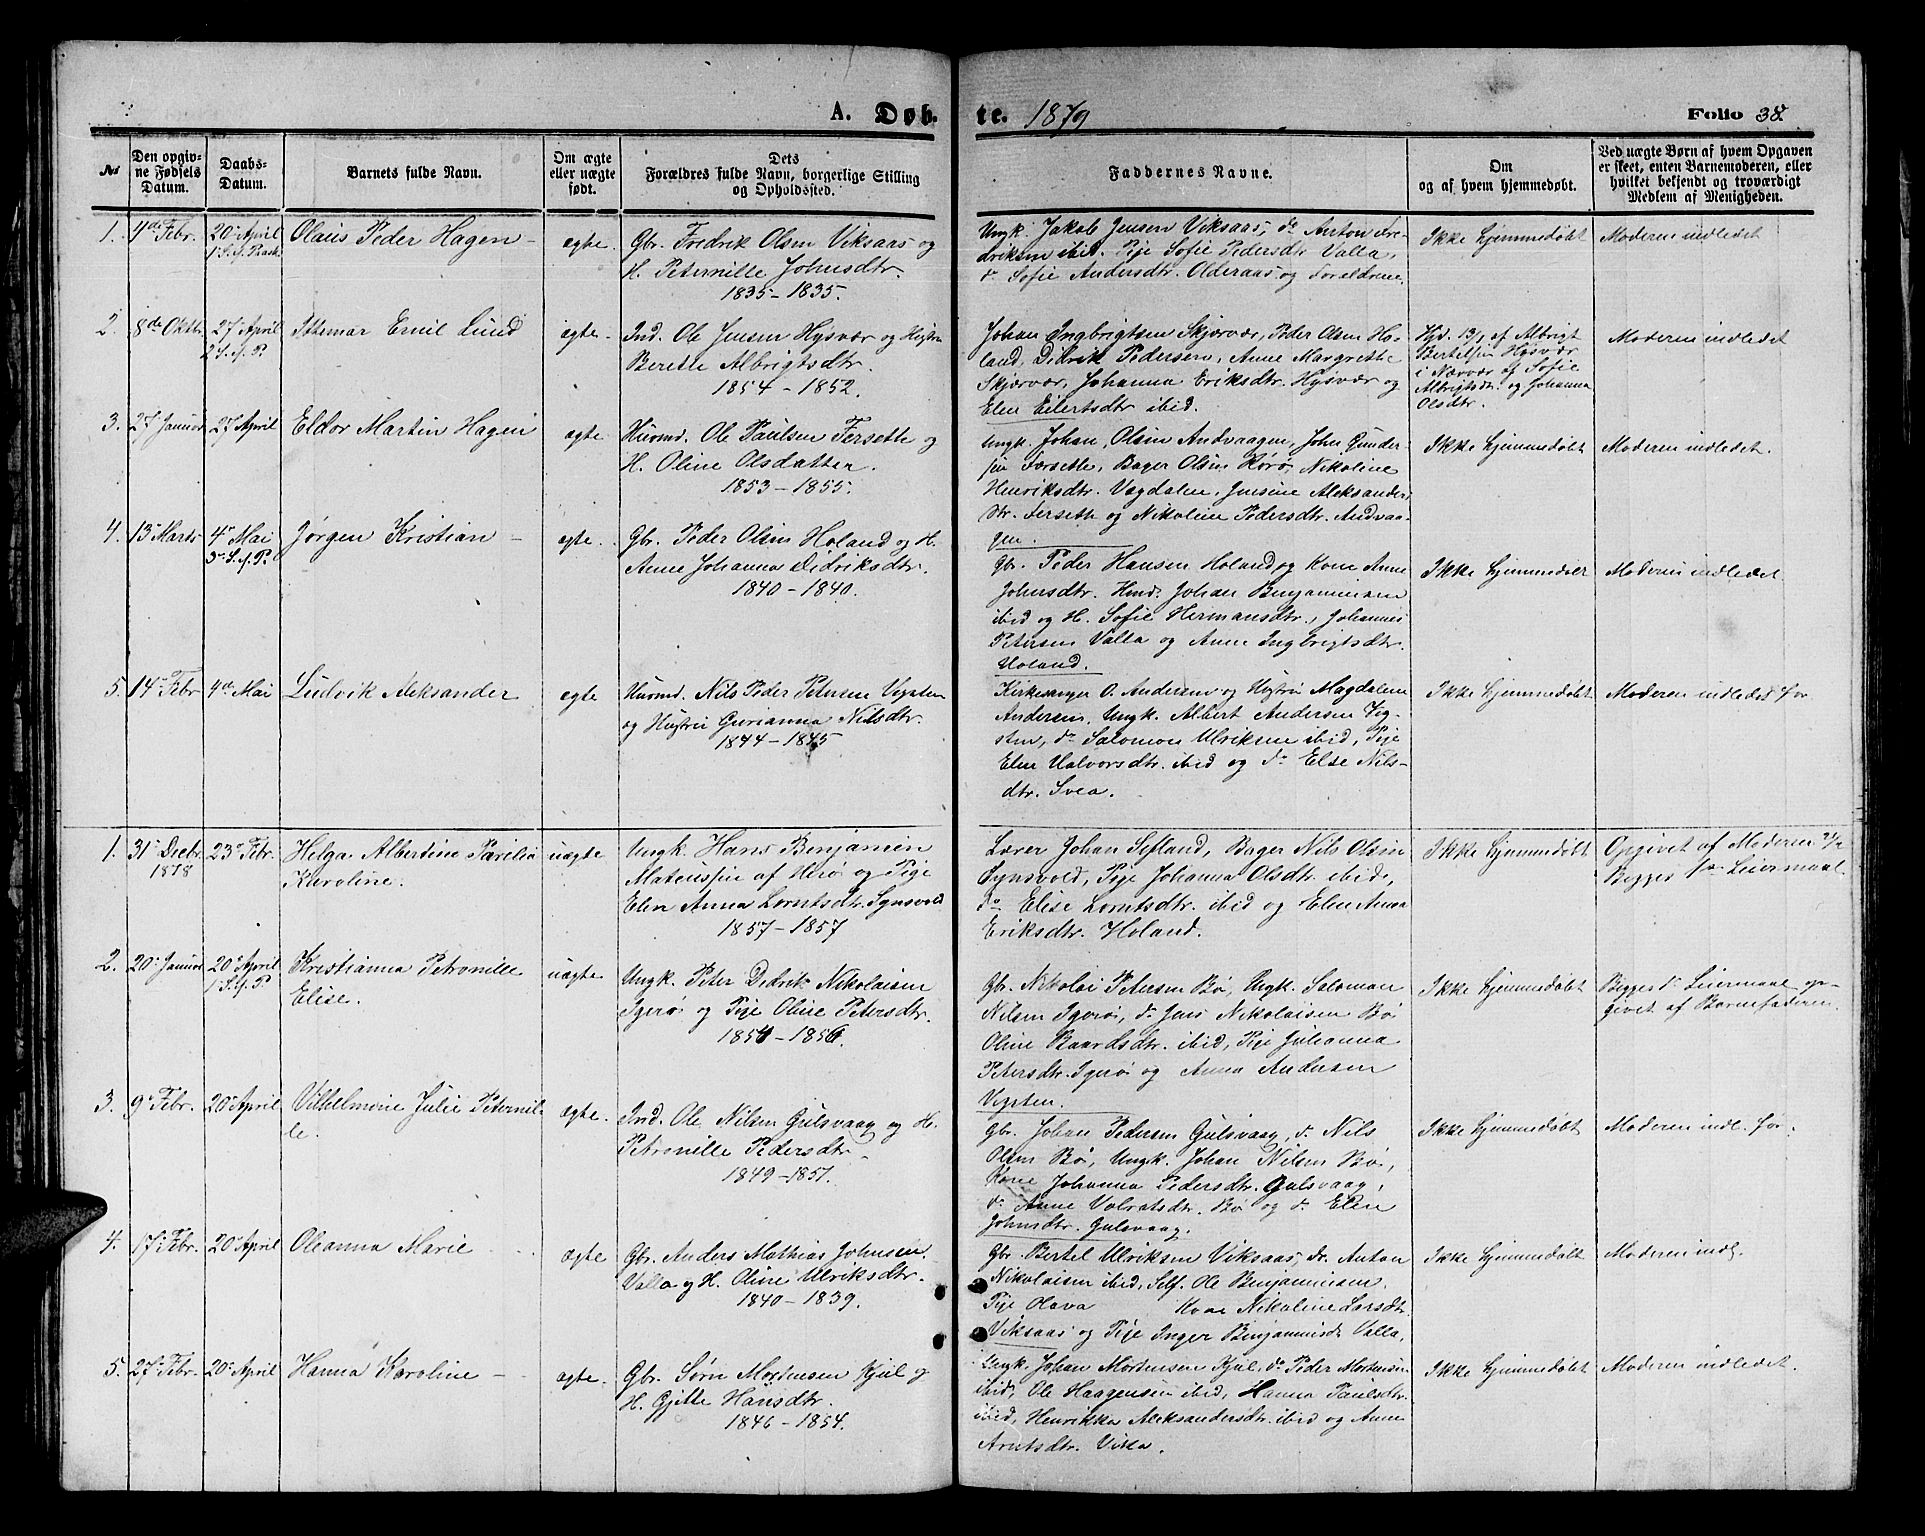 A. Døb-
te. 1879
Folio 38.
No
Den opgiv-
ne Fødsels
Datum.
Daabs-
Datum.
Barnets fulde Navn.
Om ægte
eller uægte
født.
Dets
Forældres fulde Navn, borgerlige Stilling
og Opholdssted.
Faddernes Navne.
Om
og af hvem hjemmedøbt.
Ved uægte Børn af hvem Opgaven
er skeet, enten Barnemoderen, eller
hvilket bekjendt og troværdigt
Medlem af Menigheden.
1. 4de Febr. 20 April
1 S. f. Paask.
Olaus Peder Hagen -
ægte
Gbr. Fredrik Olsen Viksaas og
H. Peternille Johnsdtr.
1835 - 1835.
Ungk. Jakob Jensen Viksaas, do Anton Fre-
driksen ibid. Pige Sofie Pedersdtr Valla,
do Sofie Andersdtr. Olderaas og Forældrene.
Ikke hjemmedøbt
Moderen indledet
2. 8de Oktbr 27 April
2 S. f. P.
Ittemar Emil Lund
ægte
Ind. Ole Jensen Hysvær og Hustru
Berette Albrigtsdtr.
1854 - 1852.
Johan Ingbrigtsen Skjærvær, Peder Olsen Ho-
land, Didrik Pedersen, Anne Margrethe
Skjærvær, Johanna Eriksdtr. Hysvær og
Elen Eilertsdtr ibid.
Hjd. 13/1 af Albrigt
Bertelsen Hysvær
i Nærvær af Sofie
Albrigtsdtr. og Johanna
Olsdtr.
Moderen indledet
3. 27 Januar 27 April
Eldor Martin Hagen
ægte
Husmd. Ole Paulsen Fersette og
H. Oline Olsdatter.
1853 - 1855.
Ungk. Johan Olsen Andvaagen, John Gunder-
sen Forsette, Bager Olsen Rørø, Nikoline
Henriksdtr. Vægdalen, Jensine Aleksander-
dtr. Ferseth og Nikoline Pedersdtr. Andvaa-
gen.
Ikke hjemmedøbt
Moderen indledet.
4. 13 Marts 4de Mai
3 S. f. P.
Jørgen Kristian -
ægte.
Gbr. Peder Olsen Holand og H.
Anne Johanna Didriksdtr.
1840 - 1840.
Gbr. Peder Hansen Holand og Kone Anne
Johnsdtr. Hmd. Johan Benjaminsen
ibid og H. Sofie Hermansdtr., Johannes
Petersen Valla og Anne Ingbrigtsdtr.
Holand.
Ikke hjemmedøbt
Moderen indledet.
5. 14 Febr 4de Mai
Ludvik Aleksander
ægte
Husmd. Nils Peder Petersen Vegsten
og Hustru Gurianna Nilsdtr.
1844 - 1845
Kirkesanger O. Andersen og Hustru Magdalene
Andersen, Ungk. Albert Andersen Vig-
sten, do Salomon Ulriksen ibid, Pige
Elen Halvorsdtr. ibid og do Else Nils-
dtr. Svea.
Ikke hjemmedøbt
Moderen indledet før
1. 31 Decbr.
1878
23 Febr.
Helga Albertine Parilia
Karoline.
uægte
Ungk. Hans Benjamin
Mateussen af Herø og Pige
Elen Anna Lorntsdtr. Synsvold
1857 - 1857
Lærer Johan Sefland, Bager Nils Olsen
Synsvold, Pige Johanna Olsdtr. ibid,
do Elise Lorntsdtr. ibid og Elen Anna
Eriksdtr. Holand.
Ikke hjemmedøbt
Opgivet af Moderen 21/2
Begges 1ste Leiermaal.
2. 20 Januar 20 April
1 S. f. P
Kristianna Petronille
Elise.
uægte
Ungk. Peter Didrik Nikolaisen
Igerø og Pige Oline Petersdtr.
1854 - 1856.
Gbr. Nikolai Petersen Bø, Ungk. Saloman
Nilsen Igerø, do Jens Nikolaisen Bø
Oline Baardsdtr. ibid, Pige Julianna
Petersdtr. Igerø og Anna Andersen
Vegsten.
Ikke hjemmedøbt
Begges 1ste Leiermaal op-
givet af Barnefaderen.
3. 9 Febr. 20 April
Vilhelmine Julie Peternil-
le.
ægte.
Ind. Ole Nilsen Gulsvaag og H.
Petronille Pedersdtr. -
1849 - 1851.
Gbr. Johan Pedersen Gulsvaag, do Nils
Olsen Bø, Ungk. Johan Nilsen Bø,
Kone Johanna Pedersdtr. Gulsvaag,
do Anne Volratsdtr. Bø og do Elen
Johnsdtr. Gulsvaag.
Ikke hjemmedøbt
Moderen indl. før.
4. 17 Febr. 20 April
Oleanna Marie - -
ægte
Gbr. Anders Mathias Johnsen
Valla og H. Oline Ulriksdtr.
1840 - 1839.
Gbr. Bertel Ulriksen Viksaas, do. Anton
Nikolaisen ibid, Self. Ole Benjaminsen.
Pige Olava Kone Nikoline Larsdtr
Viksaas og Pige Inger Benjaminsdr Valla.
Ikke hjemmedøbt
Moderen indl.
5. 27 Febr. 20 April
Hanna Karoline - -
ægte.
Gbr. Sørn Mortensen Kjul og
H. Gjitte Hansdtr.
1846 - 1854.
Ungk. Johan Mortensen Kjul, do Peder Mortensen
ibid, Ole Haagensen ibid, Hanna Paulsdtr
ibid, Henrikka Aleksandersdtr. ibid og Anne
Arntsdtr. Vikka.
Ikke hjemmedøbt
Moderen indledet.